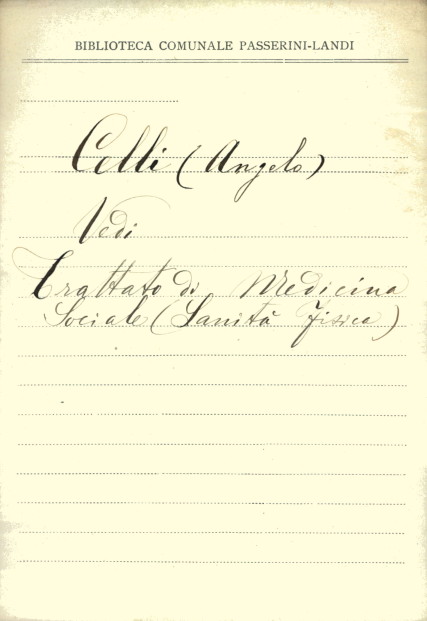 BIBLIOTECA COMUNALE PASSERINI-LANDI
Celli (Angelo)
Vedi
Trattato di Medicina
Sociale (Sanità Fisica)